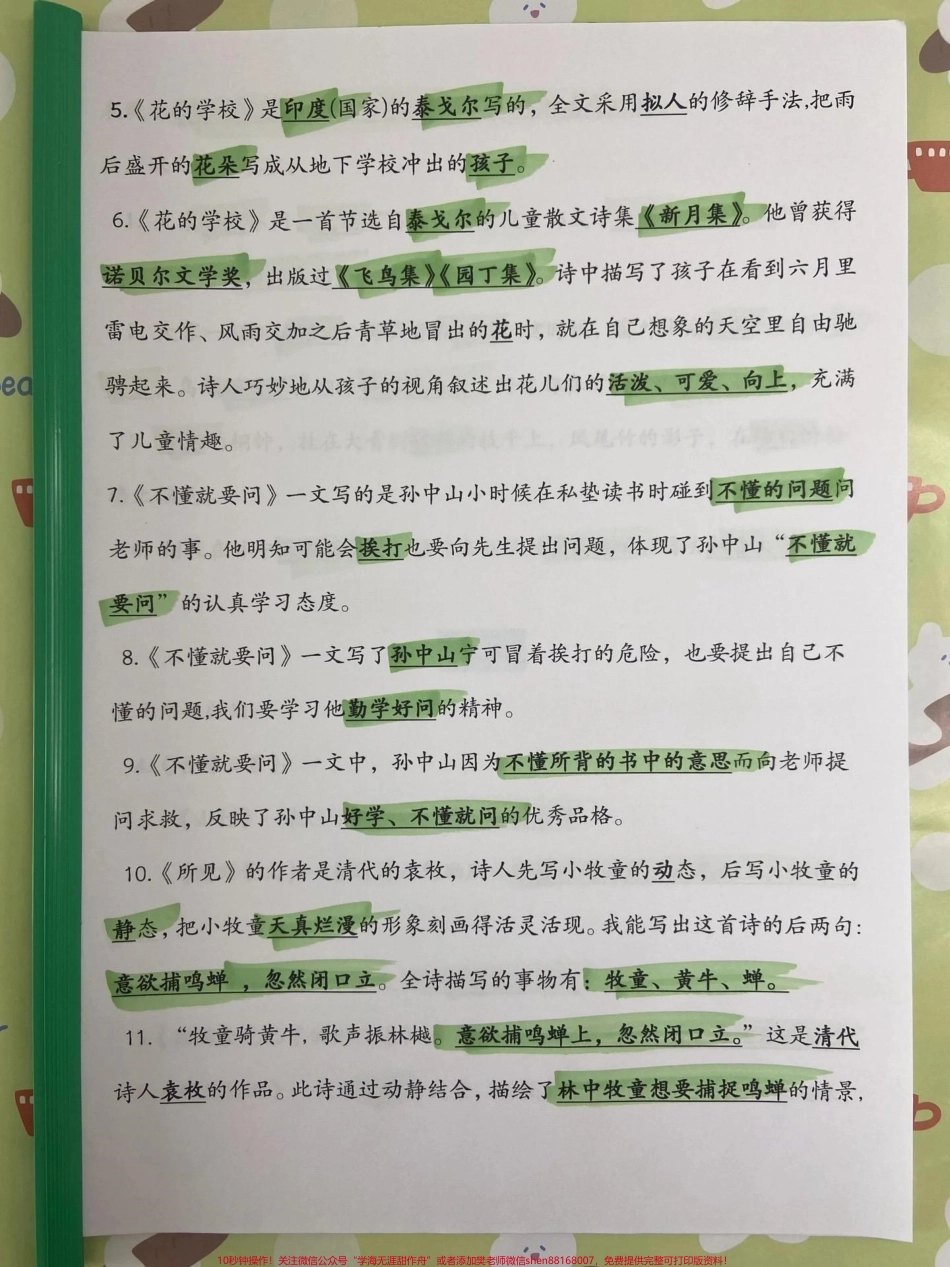 5.《花的学校》是印度(国家)的泰戈尔写的，全文采用拟人的修辞手法,把雨
后盛开的花朵写成从地下学校冲出的孩子。
6.《花的学校》是一首节选自泰戈尔的儿童散文诗集《新月集》。他曾获得
诺贝尔文学奖，出版过《飞鸟集》《园丁集》。诗中描写了孩子在看到六月里
雷电交作、风雨交加之后青草地冒出的花时，就在自己想象的天空里自由驰
骋起来。诗人巧妙地从孩子的视角叙述出花儿们的活泼、可爱、向上，充满
了儿童情趣。
7.《不懂就要问》一文写的是孙中山小时候在私垫读书时碰到不懂的问题问
老师的事。他明知可能会挨打也要向先生提出问题，体现了孙中山“不懂就
要问”的认真学习态度。
8.《不懂就要问》一文写了孙中山宁可冒着挨打的危险，也要提出自己不
懂的问题,我们要学习他勤学好问的精神。
9.《不懂就要问》一文中，孙中山因为不懂所背的书中的意思而向老师提
问求救，反映了孙中山好学、不懂就问的优秀品格。
10.《所见》的作者是清代的袁枚，诗人先写小牧童的动态，后写小牧童的
静态，把小牧童天真烂漫的形象刻画得活灵活现。我能写出这首诗的后两句：
意欲捕鸣蝉 ，忽然闭口立。全诗描写的事物有：牧童、黄牛、蝉。
11. “牧童骑黄牛，歌声振林樾。意欲捕鸣蝉上，忽然闭口立。”这是清代
诗人袁枚的作品。此诗通过动静结合，描绘了林中牧童想要捕捉鸣蝉的情景，
10秒钟操作！关注微信公众号“学海无涯甜作舟”或者添加樊老师微信shen88168007，免费提供完整可打印版资料！